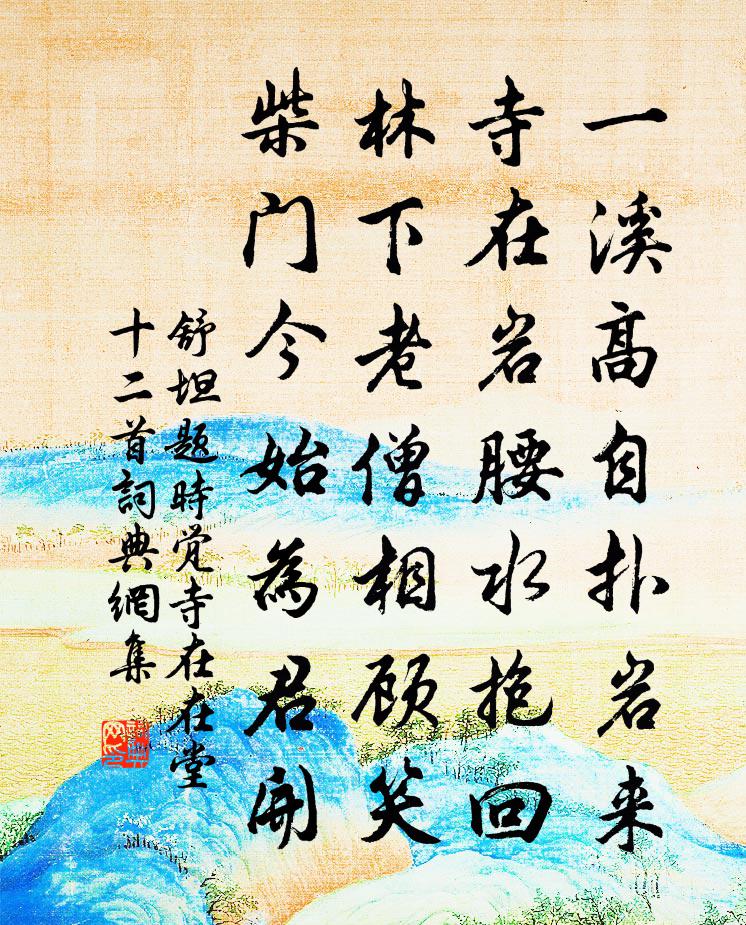 一溪高自扑岩来
寺在岩腰水抱回
林下老僧相顾笑
柴门今始为君开
舒坦题時觉寺在在堂
十二首詞典網集